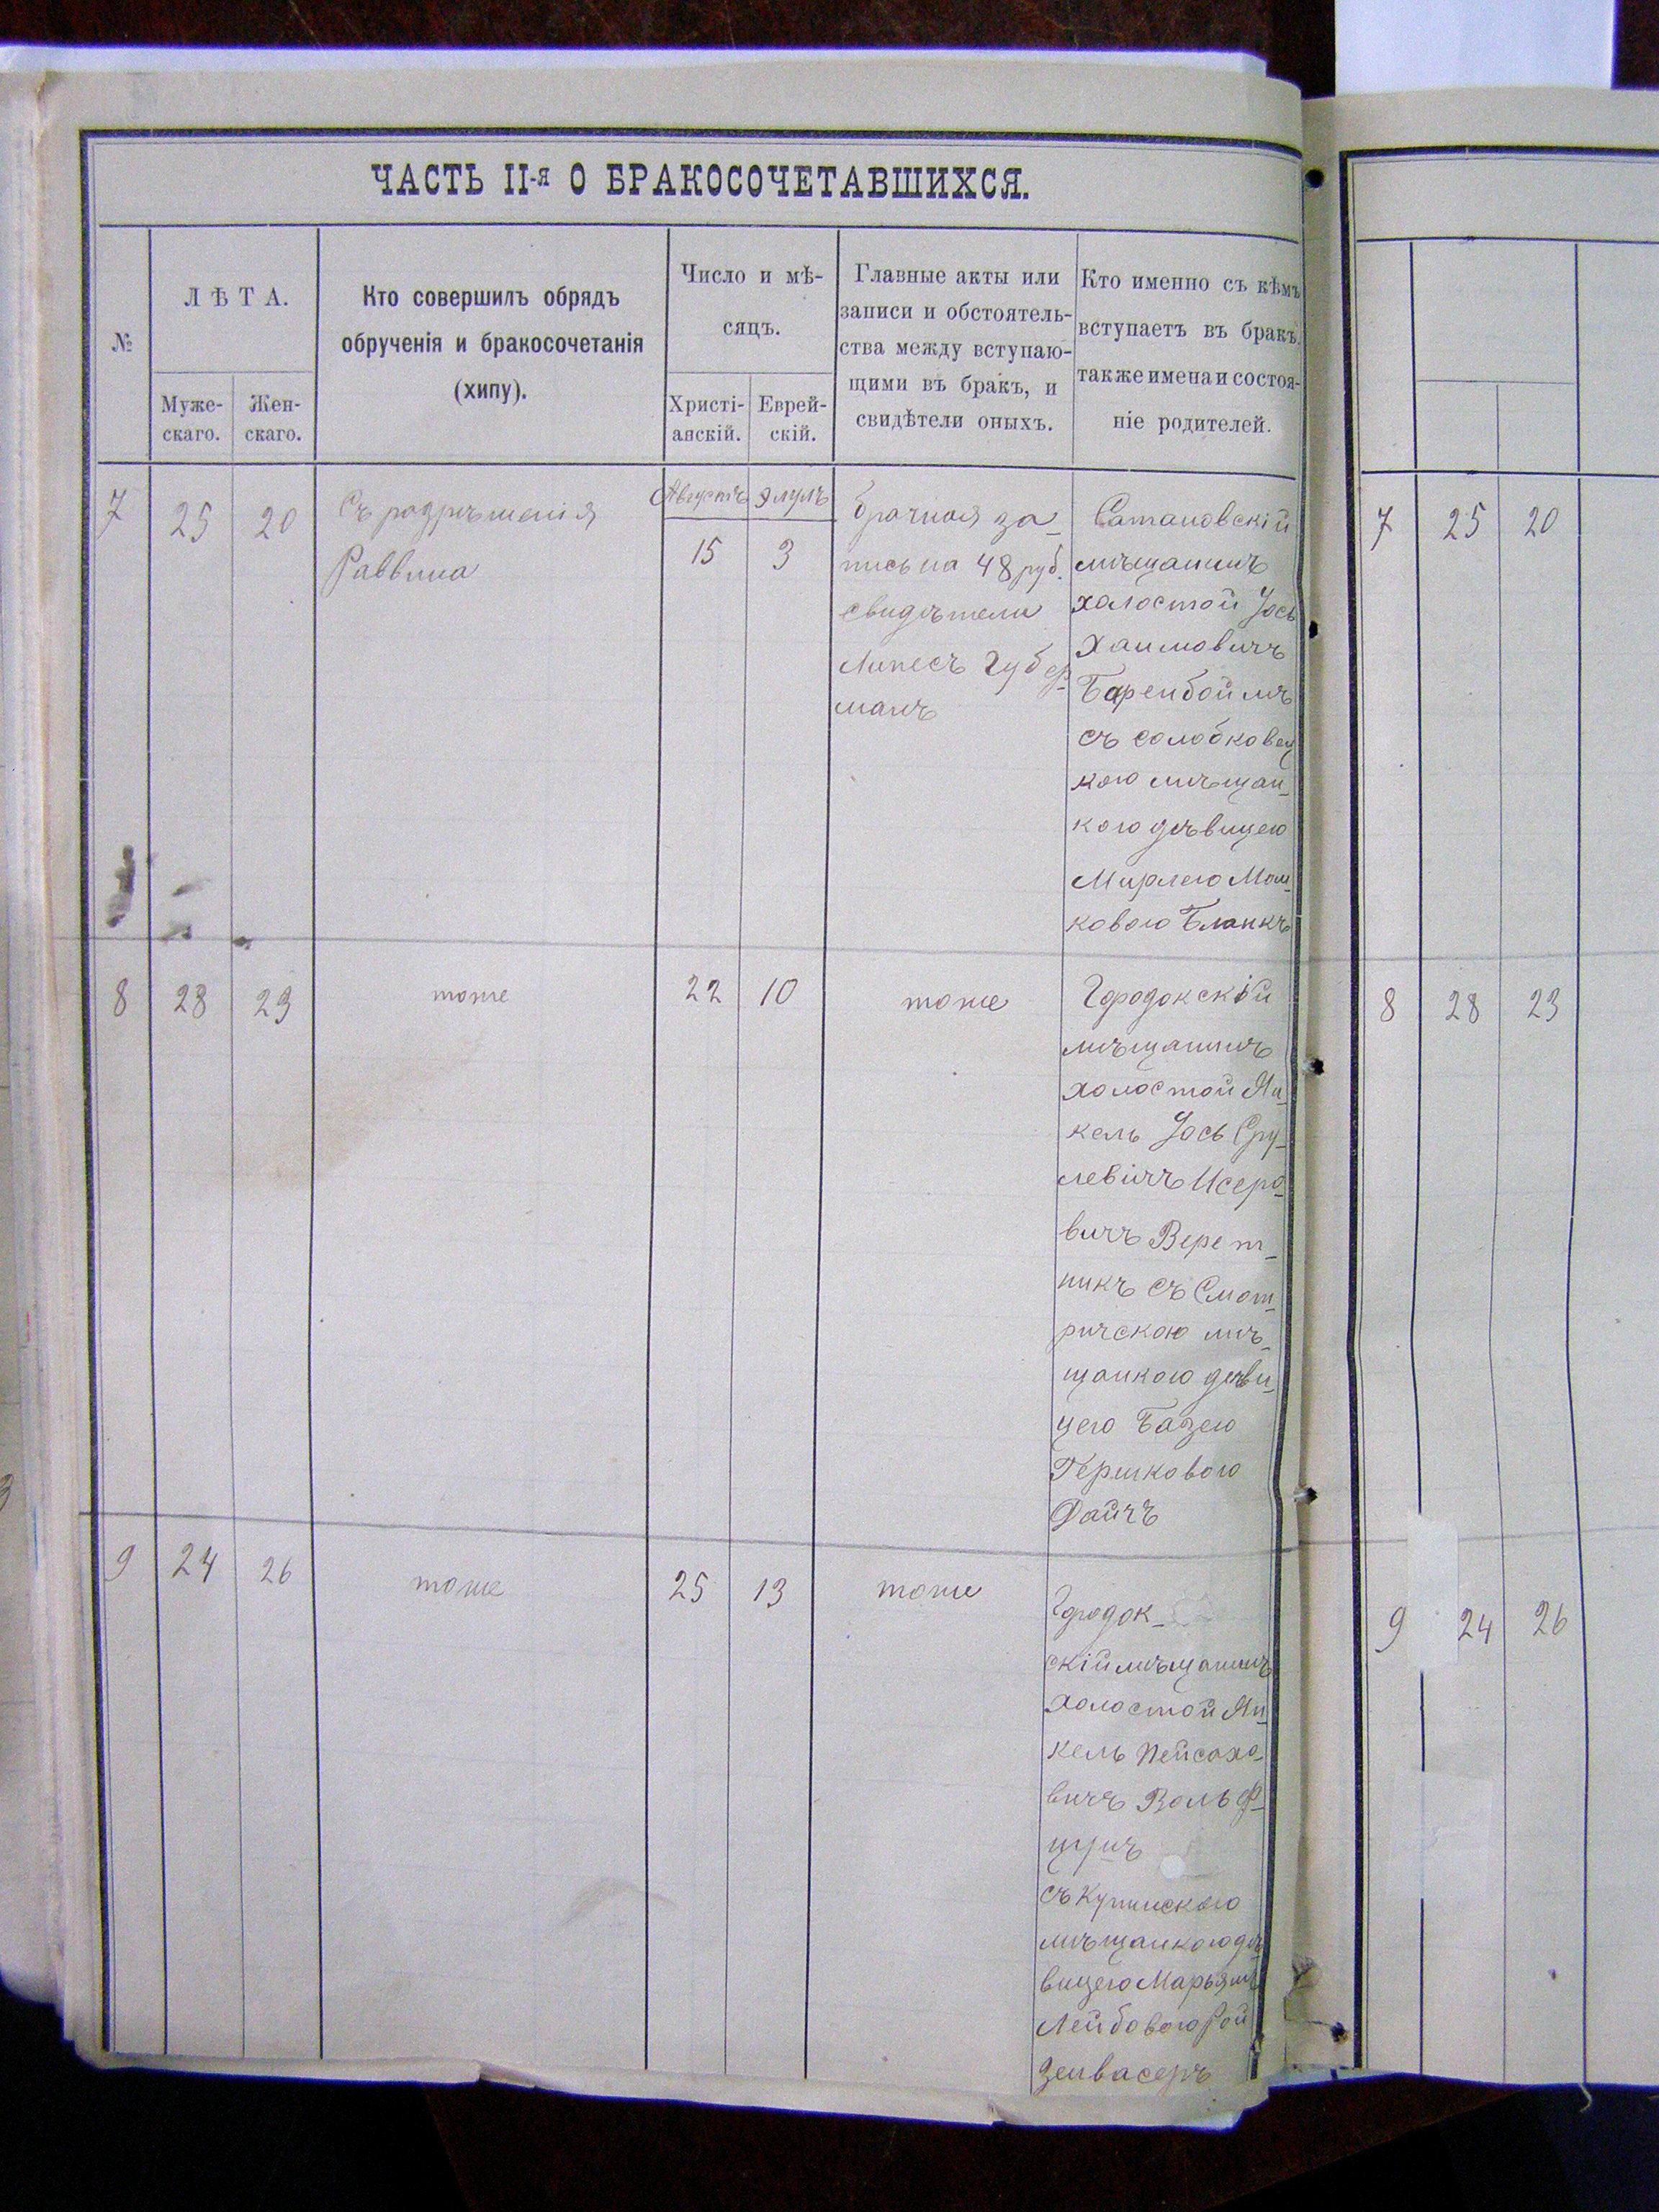 ЧАСТЬ II-я О БРАКОСОЧЕТАВШИХСЯ.
№
ЛѢТА.
Муже-
скаго.
Жен-
скаго.
Кто совершилъ обрядъ
обрученія и бракосочетанія
(хипу).
Число и мѣ-
сяцъ.
Христі-
анскій.
Еврей-
скій.
Главные акты или
записи и обстоятель-
ства между вступаю-
щими въ бракъ, и
свидѣтели оныхъ.
Кто именно съ кѣмъ
вступаетъ въ бракъ,
также имена и состоя-
ніе родителей.
7
25
20
Съ разрѣшенія
Раввина
Августъ
15
Элулъ
3
брачная за-
пись на 48 руб.
свидѣтели
Липесъ Губер-
манъ
Сатановскій
мѣщанинъ
холостой Іось
Хаимовичъ
Баренбоймъ
съ солобковец
кою мѣщан-
кою дѣвицею
Мирлею Мош-
ковою Бланкъ
8
28
23
тоже
22
10
тоже
Городокскій
мѣщанинъ
холостой Ян-
кель Іось Сру-
левичъ Исеро-
вичъ Верет-
никъ съ Смот-
ричскою мѣ-
щанкою дѣви-
цею Базею
Гершковою
Дайчъ
9
24
26
тоже
25
13
тоже
Городок-
скій мѣщанинъ
холостой Ян-
кель Пейсахо-
вичъ Вольф-
цунъ
съ Купинскою
мѣщанкою дѣ
вицею Марьямъ
Лейбовою Рой
зенвасеръ
7 25 20
8 28 23
9 24 26